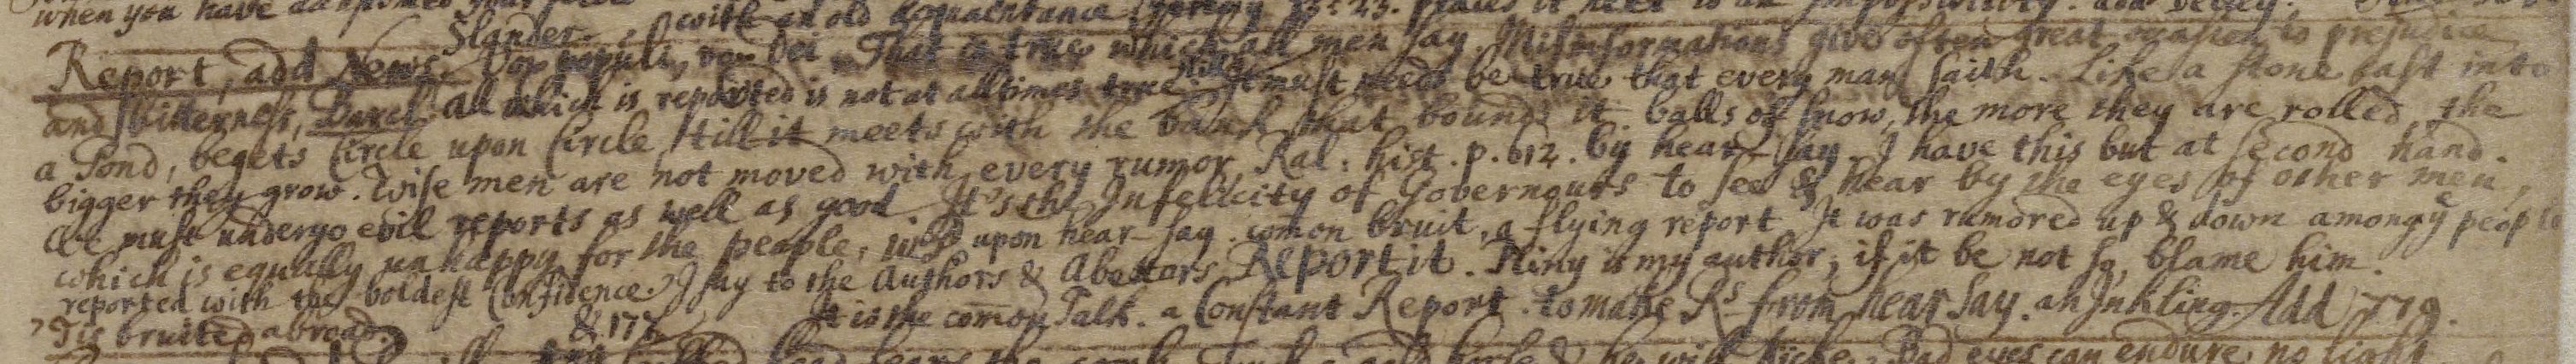 when you have with an old acquaintance
Slander.
Report, add News. Vox populi, vox Dei. That is true which all men say. Misinformations give often great ocasion to prejudice
and bitterness, Burel. All which is reported is not at all times true. It must needs be true that every man saith. Like a stone cast into
a Pond, begets Circle upon Circle till it meets with the bank that bounds it balls of snow, the more they are rolled, the
bigger they grow. Wise men are not moved with every rumor, Ral: hist. p. 612. by hear-say. I have this but at second hand.
We must undergo evil reports as well as good. It's the Infelicity of Governours to see & hear by the eyes of other men,
which is equally unhappy for the people, upon hear-say. com̄on bruit, a flying report. It was rumored up & down among yͤ people
reported with the boldest Confidence. I say to the Authors & Abettors Report it. Pliny is my author, if it be not so, blame him.
'Tis bruited abroad. & 177 It is the com̄on Talk. a Constant Report. to make Rˢ from hear say. an Inkling. Add 779.
Bad eyes can endure no light